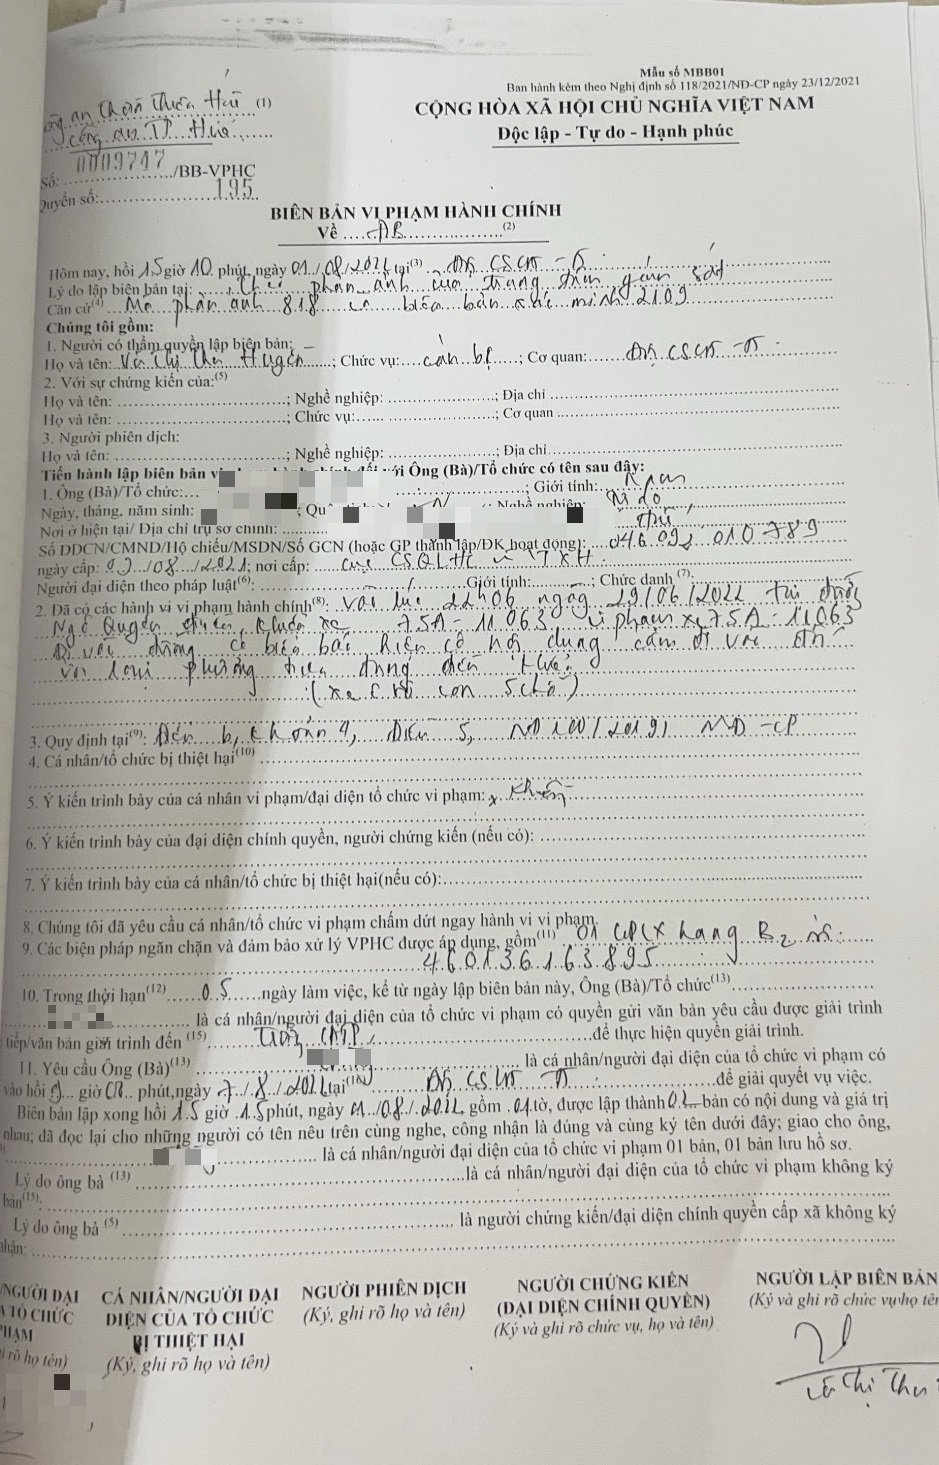 Mẫu số MBB01
Ban hành kèm theo Nghị định số 118/2021/NĐ-CP ngày 23/12/2021
CỘNG HÒA XÃ HỘI CHỦ NGHĨA VIỆT NAM
Độc lập - Tự do - Hạnh phúc
(1)
Công an TP Huế
Số: 0009747 /BB-VPHC
Quyển số: 195
BIÊN BẢN VI PHẠM HÀNH CHÍNH
Về ĐB (2)
Hôm nay, hồi 15 giờ 10 phút, ngày 01/08/2022 tại(3) Đội CSGT - TT
Lý do lập biên bản tại: Theo phản ánh của trang
Căn cứ(4) Mã phản ánh 818 biên bản xác minh 2109
Chúng tôi gồm:
1. Người có thẩm quyền lập biên bản:
Họ và tên: Võ Thị Thu Huyền; Chức vụ: cán bộ; Cơ quan: Đội CSGT - TT
2. Với sự chứng kiến của:(5)
Họ và tên: ; Nghề nghiệp: ; Địa chỉ
Họ và tên: ; Chức vụ: ; Cơ quan
3. Người phiên dịch:
Họ và tên: ; Nghề nghiệp: ; Địa chỉ
Tiến hành lập biên bản với Ông (Bà)/Tổ chức có tên sau đây:
1. Ông (Bà)/Tổ chức: ; Giới tính: Nam
Ngày, tháng, năm sinh: ; Nghề nghiệp: Tự do
Nơi ở hiện tại/ Địa chỉ trụ sở chính:
Số DDCN/CMND/Hộ chiếu/MSDN/Số GCN (hoặc GP thành lập/ĐK hoạt động): 046092010789
ngày cấp: 09/08/2021; nơi cấp: cục CSQLHC về TTXH
Người đại diện theo pháp luật(6): / Giới tính: ; Chức danh (7):
2. Đã có các hành vi vi phạm hành chính(8): Vào lúc 22h06 ngày 29/06/2022 tại đường
Ngô Quyền, điều khiển xe 75A-11063 vi phạm xe 75A-11063
Đi vào đường có biển báo hiệu có nội dung cấm đi vào đối
với loại phương tiện đang điều khiển
(xe ô tô con 5 chỗ)
3. Quy định tại(9): Điểm b, khoản 4, Điều 5, NĐ 100/2019/NĐ-CP
4. Cá nhân/tổ chức bị thiệt hại(10)
5. Ý kiến trình bày của cá nhân vi phạm/đại diện tổ chức vi phạm: Không
6. Ý kiến trình bày của đại diện chính quyền, người chứng kiến (nếu có):
7. Ý kiến trình bày của cá nhân/tổ chức bị thiệt hại(nếu có):
8. Chúng tôi đã yêu cầu cá nhân/tổ chức vi phạm chấm dứt ngay hành vi vi phạm.
9. Các biện pháp ngăn chặn và đảm bảo xử lý VPHC được áp dụng, gồm(11) 01 GPLX hạng B2 số:
460136163895
10. Trong thời hạn(12) 05 ngày làm việc, kể từ ngày lập biên bản này, Ông (Bà)/Tổ chức(13)
là cá nhân/người đại diện của tổ chức vi phạm có quyền gửi văn bản yêu cầu được giải trình
tiếp/văn bản giải trình đến (15) Trưởng CATP để thực hiện quyền giải trình.
11. Yêu cầu Ông (Bà)(13) là cá nhân/người đại diện của tổ chức vi phạm có
vào hồi 9 giờ 00 phút, ngày 7/8/2022 tại(16) Đội CSGT - TT để giải quyết vụ việc.
Biên bản lập xong hồi 15 giờ 15 phút, ngày 01/08/2022, gồm 01 tờ, được lập thành 02 bản có nội dung và giá trị
nhau; đã đọc lại cho những người có tên nêu trên cùng nghe, công nhận là đúng và cùng ký tên dưới đây; giao cho ông,
là cá nhân/người đại diện của tổ chức vi phạm 01 bản, 01 bản lưu hồ sơ.
Lý do ông bà (13) là cá nhân/người đại diện của tổ chức vi phạm không ký
bản(15):
Lý do ông bà (5) là người chứng kiến/đại diện chính quyền cấp xã không ký
nhận:
/NGƯỜI ĐẠI
TỔ CHỨC
PHẠM
rõ họ tên)
CÁ NHÂN/NGƯỜI ĐẠI
DIỆN CỦA TỔ CHỨC
BỊ THIỆT HẠI
(Ký, ghi rõ họ và tên)
NGƯỜI PHIÊN DỊCH
(Ký, ghi rõ họ và tên)
NGƯỜI CHỨNG KIẾN
(ĐẠI DIỆN CHÍNH QUYỀN)
(Ký và ghi rõ chức vụ, họ và tên)
NGƯỜI LẬP BIÊN BẢN
(Ký và ghi rõ chức vụ họ tên
Võ Thị Thu